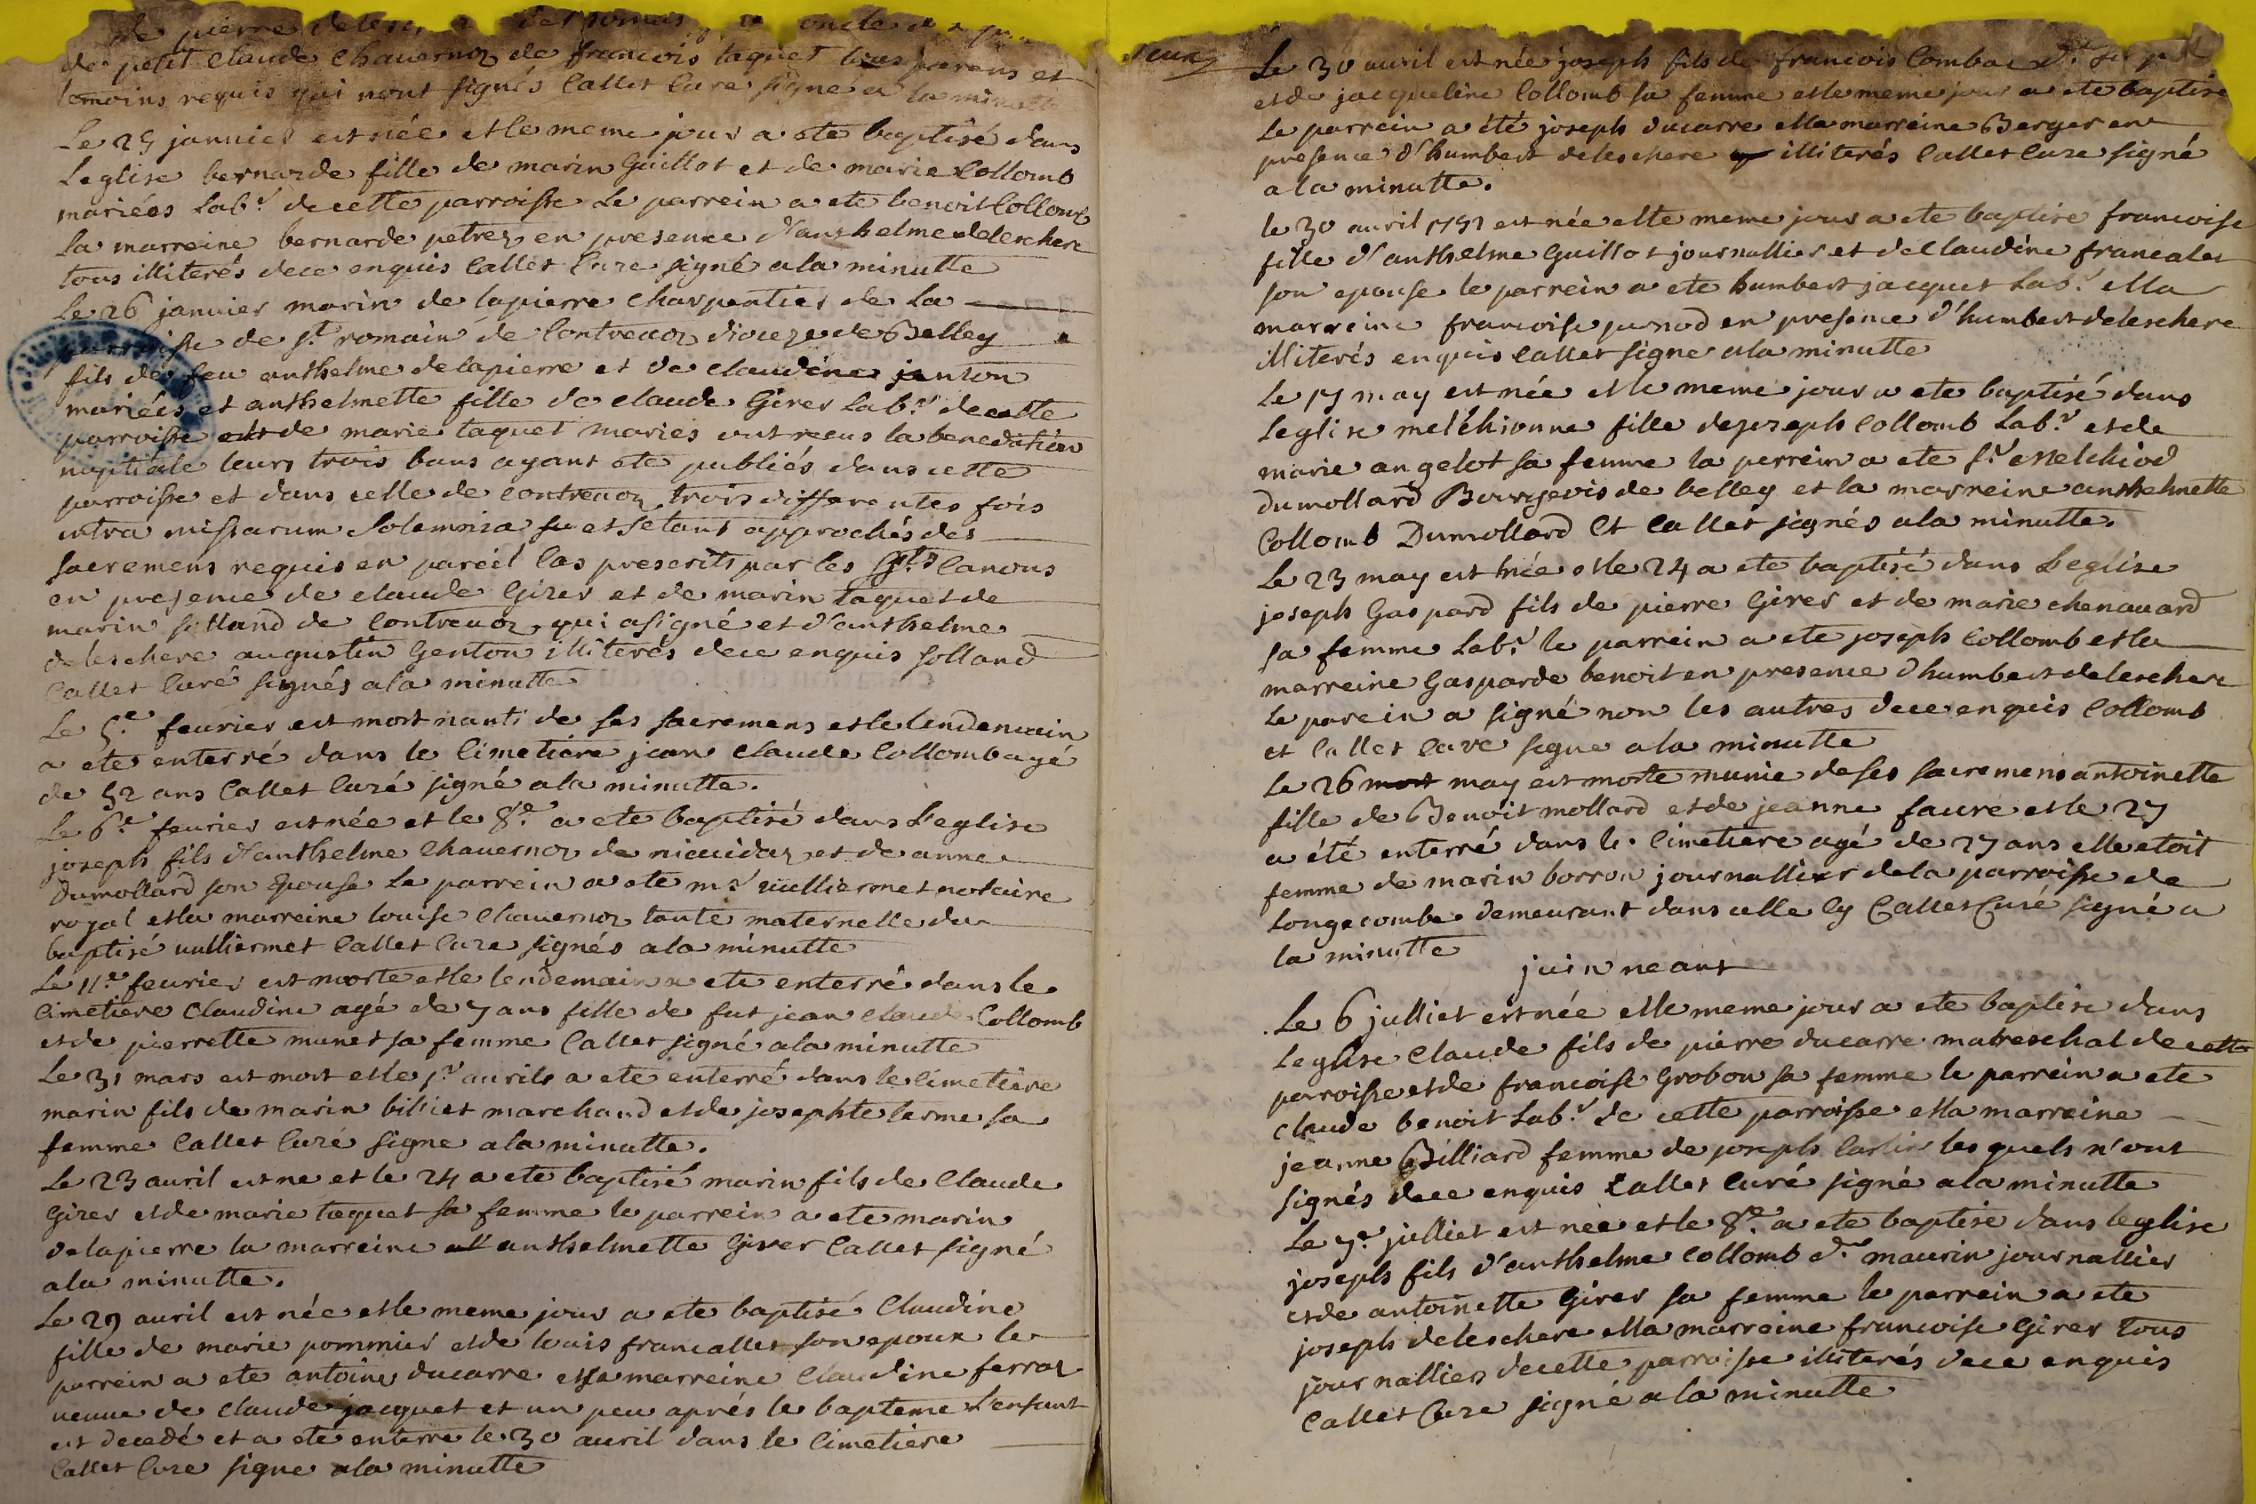 de pierre
de petit claude chavernoz de francois taquet tous parens et
temoins requis qui nont signés Callet Cure signe a la minutte
Le 25 janvier est née et le meme jour a ete baptisé dans
Leglise bernarde fille de marin Guillot et de marie Collomb
mariéés Labr. de cette parroisse Le parrein a ete benoit Collomb
La marreine bernarde petrez en presence d'anthelme delechere
tous illiterés de ce enquis Callet Cure signé a la minutte
Le 26 janvier marin de lapierre charpentier de La
parroisse de st. romain de Contrevoz dioceze de Belley
fils de feu anthelme delapierre et de claudine janton
mariéés et anthelmette fille de claude Girer Labr. de cette
parroisse et de marie taquet mariés ont recus la benediction
nuptiale leurs trois bans ayant ete publiés dans cette
parroisse et dans celle de contrevoz trois differentes fois
intra missarum Solemnia et setant approchés des
sacremens requis en pareil Cas prescrits par les Sts. Canons
en presence de claude Girer et de marin taquet de
marin solland de Contrevoz qui a signé et d'anthelme
deleschere augustin Genton illiterés de ce enquis solland
Callet Curé signés a la minutte
Le 5.e fevrier est mort nanti de ses sacremens et le lendemain
a ete enterré dans le Cimetiére jean claude Collomb agé
de 52 ans Callet Curé signé a la minutte.
Le 6.e fevrier est née et le 8.e a ete baptisé dans L'eglise
joseph fils d'anthelme chavernoz de et de anne
Dumollard son Epouse Le parrein a ete mr. vulliermet notaire
royal et la marreine louise chavernoz tante maternelle du
baptisé vulliermet Callet Cure signés a la minutte
Le 11.e fevrier est morte et le lendemain a ete enterré dans le
Cimetiere Claudine agé de 7 ans fille de fut jean claude Collomb
et de pierrette munet sa femme Callet signé a la minutte
Le 31 mars est mort et le 1.r avrils a ete enterré dans le Cimetiére
marin fils de marin billiet marchand et de josephte lerme sa
femme Callet Curé signe a la minutte.
Le 23 avril est ne et le 24 a ete baptisé marin fils de Claude
Girer et de marie taquet sa femme le parrein a ete marin
delapierre la marreine anthelmette Girer Callet signé
a la minutte.
Le 29 avril est née et le meme jour a ete baptisé Claudine
fille de marie pommier et de louis francallet son epoux le
parrein a ete antoine ducarre et sa marreine Claudine ferraz
veuve de claude jacquet et un peu aprés le bapteme L'enfant
est decedé et a ete enterre le 30 avril dans le Cimetiére
Callet Cure signe a la minutte
Le 30 avril est née joseph fils de francois Combaz
et de jacqueline Collomb sa femme et le meme jour a ete baptisé
Le parrein a été joseph ducarre et la marreine Berger en
presence d'humbert deleschere illiterés Callet Cure signé
a la minutte.
le 30 avril 1791 est née et le meme jour a ete baptisé francoise
fille d'anthelme Guillot journallier et de Claudine francalet
son epouse le parrein a ete humbert jacquet Labr. et la
marreine francoise junod en presence d'humbert deleschere
illiterés enquis Callet signe a la minutte
Le 17 may est née et le meme jour a ete baptisé dans
Leglise melchionne fille de joseph Collomb Labr. et de
marie angelot sa femme la perrein a ete sr. Melchiod
Dumollard Bourgeois de belley et la marreine anthelmette
Collomb Dumollard Et Callet signés a la minutte.
Le 23 may est née et le 24 a ete baptisé dans L'eglise
joseph Gaspard fils de pierre Girer et de marie chenavard
sa femme Labr. le parrein a ete joseph Collomb et la
marreine Gasparde benoit en presence d'humbert deleschere
Le parein a signé non les autres de ce enquis Collomb
et Callet Cure signe a la minutte
Le 26 mort may est morte munie de ses sacremens antoinette
fille de Benoit mollard et de jeanne faure et le 27
a été enterré dans le Cimetiere agé de 27 ans elle etoit
femme de marin borron journallier de la parroisse de
Longecombe demeurant dans celle cy Callet Curé signé a
la minutte
juin neant
Le 6 julliet est née et le meme jour a ete baptisé dans
Leglise Claude fils de pierre ducarre mareschal de cette
parroisse et de francoise Grobon sa femme le parrein a ete
claude benoit Labr. de cette parroisse et la marreine
jeanne Billiard femme de joseph Carlin les quels n'ont
signés de ce enquis Callet Curé signé a la minutte
Le 7.e julliet est née et le 8.e a ete baptisé dans leglise
joseph fils d'anthelme Collomb dr. maurin journallier
et de antoinette Girer sa femme le parrein a ete
joseph deleschere et la marreine francoise Girer tous
journallier de cette parroisse illiterés de ce enquis
Callet Cure signé a la minutte